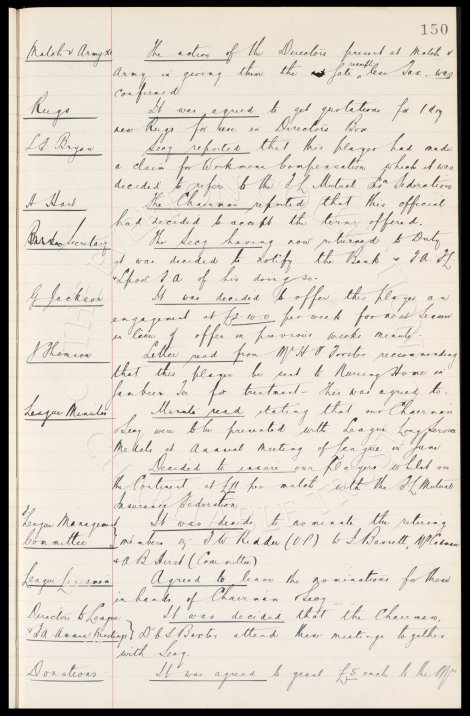 150
Match v Army XI The action of the Directors present at Match v
Army in giving them the Gate receipts less Tax. was
confirmed
Rugs It was agreed to get quotations for 1 doz
new Rugs for use in Directors Box
Secy reported that this player had made
a claim for Workmens Compensation which it was
decided to refer to the F L Mutual Ins Federation
The Chairman reported that this official
had decided to accept the terms offered.
Secretary The Secy having now returned to Duty
it was decided to notify the Bank & F A. F L
& Lpool F A of his doing so.
G Jackson It was decided to offer this player an
engagement at per week for next Season
in lieu of offer in previous weeks minute
J Thomson Letter read from Mr H O recommending
that this player be sent to Nursing Home in
for treatment - This was agreed to.
League Minutes Minute read stating that our Chairman
& Secy were to be presented with League Long Service
Medals at Annual Meeting of League in June
Decided to insure our Players whilst on
the Continent at per match with the F L Mutual
Insurance Federation
League Management It was decided to nominate the retiring
Committee } members
& A B Hirst (Committee)
League Linesmen Agreed to leave the nominations for these
in hands of Chairman & Secy
Directors to League It was decided that the Chairman,
& F A Annual Meetings } Dr & S Baxter attend these meetings together
with Secy.
Donations It was agreed to grant £5 each to the